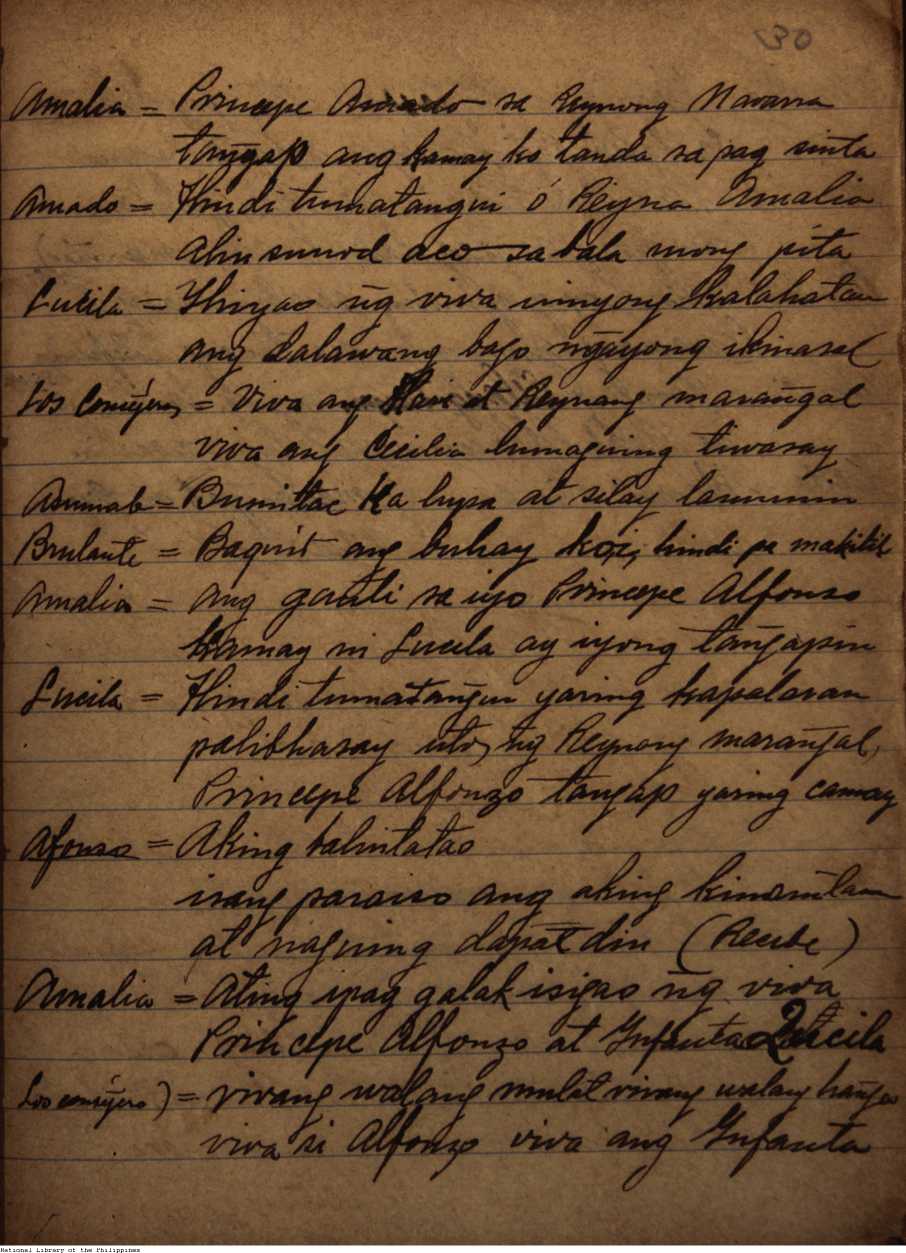 30
Amalia = Principe Amado sa Reynong Navarra
tangap ang kamay ko tanda sa pag sinta
Amado = Hindi tumatangui ó Reyna Amalia
alinsunod aco sa bala mong pita
Lucila = Ihiyao ng viva ninyong kalahatan
ang dalawang bago ngayong ikinasal
Los Consejeros = Viva ang Hari at Reynang marangal
viva ang Cecilia humaguing tiwasay
= Bumitac Ka lupa at silay lamunin
Brulante = Baquit ang buhay koi, hindi pa makitil
Amalia = ang ganti sa iyo Principe Alfonso
Kamay ni Lucila ay iyong tangapin
Lucila = Hindi tumatangui yaring kapalaran
palibhasay utos ng Reynang marangal,
Principe Alfonzo tangap yaring camay
Afonso = Aking balintatao
isang paraiso ang aking
at naguing dapat din (Recibe)
Amalia = Ating ipag galak isigao ng viva
Principe Alfonzo at Infanta Lucila
Los consejeros) = vivang walang mulat vivang walang hanga
viva si Alfonzo viva ang Infanta
National Library of the Philippines